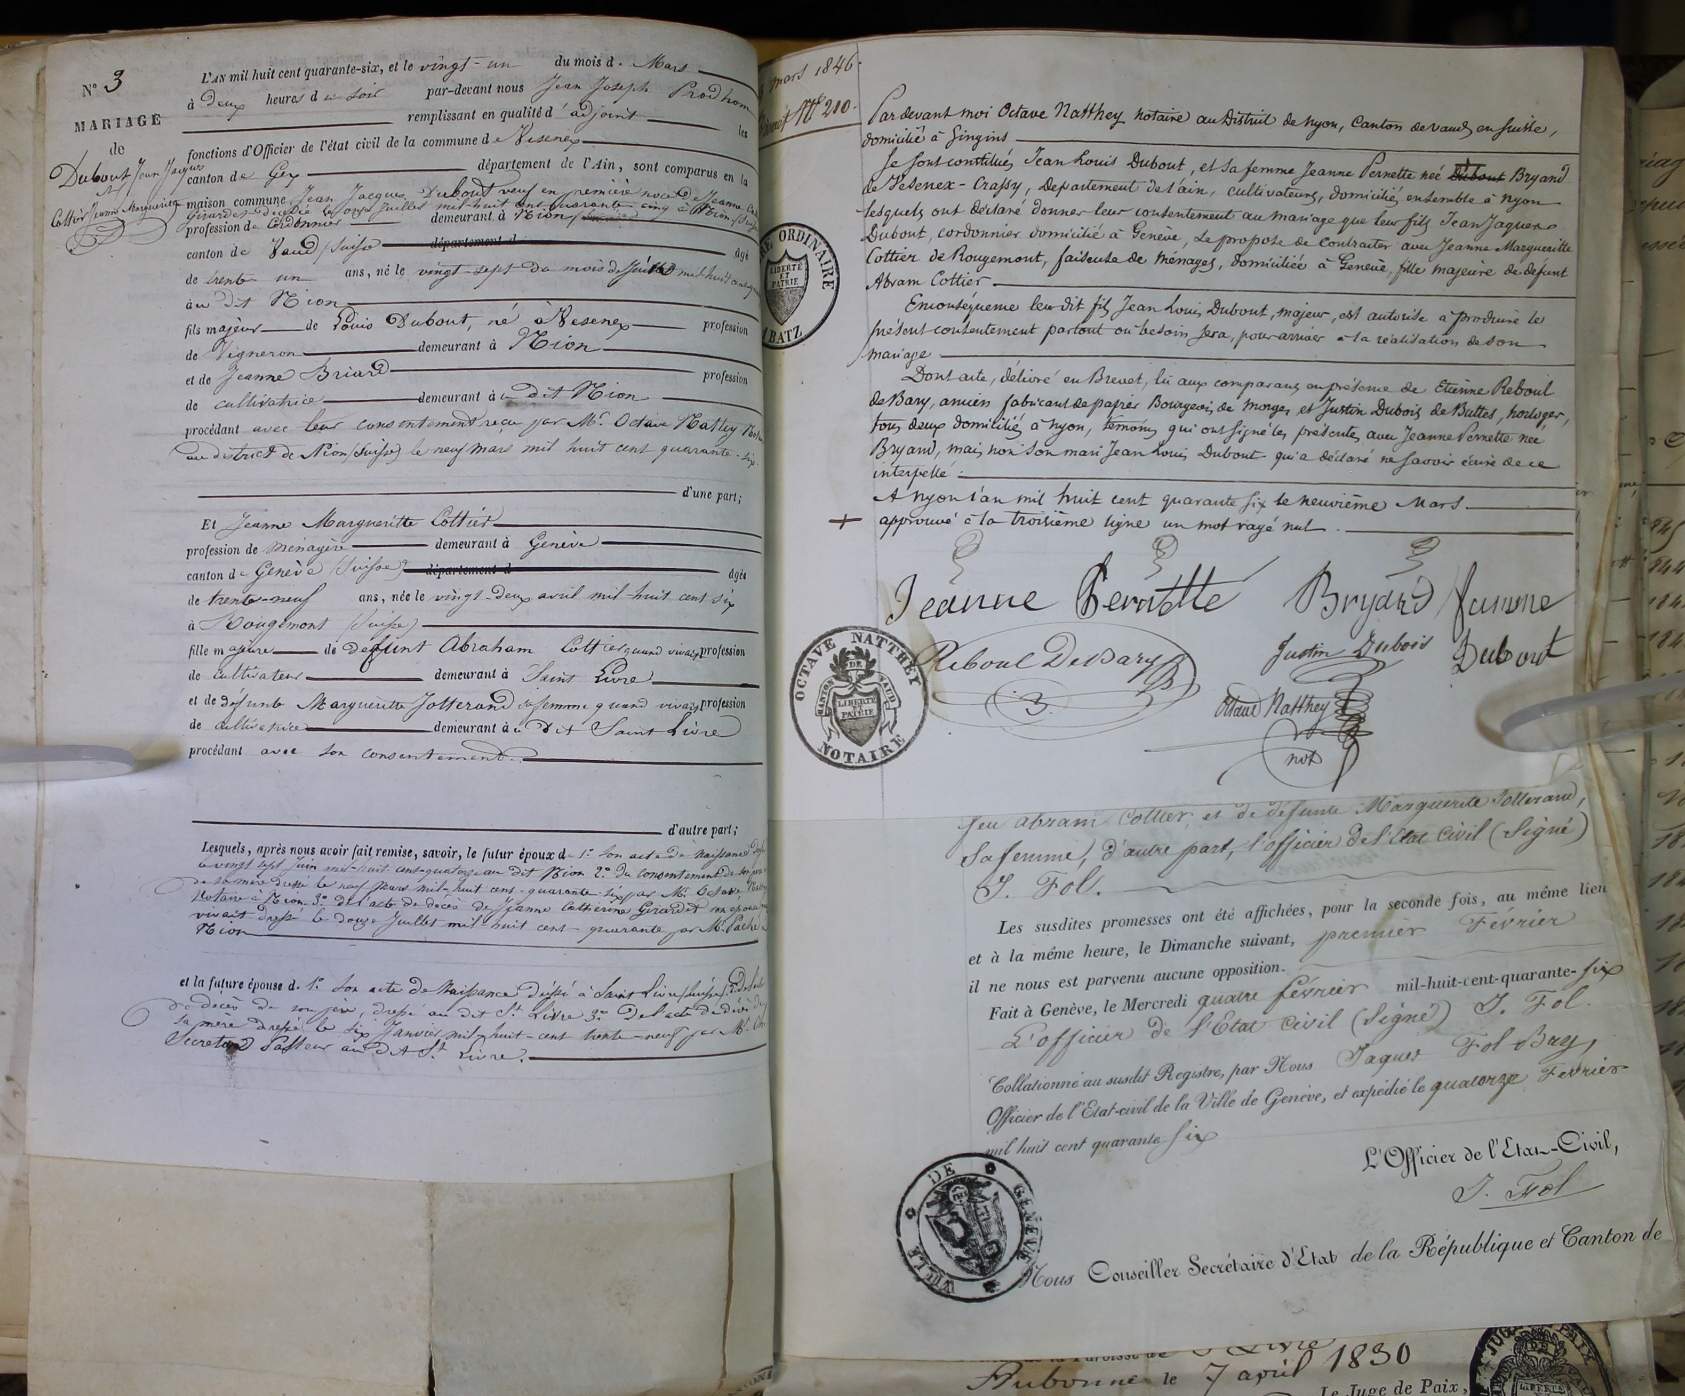 N° 3
MARIAGE
de
Dubout Jean Jacques
et
Cottier Jeanne Marguerite
L'AN mil huit cent quarante-six, et le vingt-un du mois d. Mars
à deux heures du soir par-devant nous Jean Joseph Prodhom
remplissant en qualité d'adjoint les
fonctions d'Officier de l'état civil de la commune de Vesenex
canton de Gex département de l'Ain, sont comparus en la
maison commune Jean Jacques Dubout veuf en première noce de Jeanne
Girardet décédée le onze Juillet mil-huit-cent-quarante-cinq à Nion
profession de Cordonnier demeurant à Nion
canton de Vaud (Suisse département d âgé
de trente un ans, né le vingt-sept du mois de Juin mil-huit
au dit Nion
fils majeur de Louis Dubout, né à Vesenex profession
de Vigneron demeurant à Nion
et de Jeanne Briard profession
de cultivatrice demeurant au dit Nion
procédant avec leur consentement reçu par Mr. Octave Nattey
au district de Nion (Suisse) le neuf mars mil huit cent quarante-six.
d'une part;
Et Jeanne Margueritte Cottier
profession de ménagère demeurant à Genève
canton de Genève (Suisse) département d âgée
de trente-neuf ans, née le vingt-deux avril mil-huit cent six
à Rougemont (Suisse)
fille majeure de défunt Abraham Cottier quand vivait profession
de cultivateur demeurant à Saint Livre
et de défunte Margueritte Jotterand sa femme quand vivait profession
de cultivatrice demeurant au dit Saint Livre
procédant avec son consentement.
d'autre part;
Lesquels, après nous avoir fait remise, savoir, le futur époux d. 1° son acte de naissance
le vingt sept Juin mil-huit-cent-quatorze au dit Nion 2° du consentement de son père
de sa mère dressé le neuf mars mil-huit-cent-quarante-six par Mr. Octave
Notaire à Nion 3° de l'acte de décès de Jeanne Catherine Girardet son épouse
vivait dressé le douze Juillet mil-huit cent-quarante par M. Pache
Nion
et la future épouse d. 1° son acte de Naissance dressé à Saint Livre (Suisse)
de décès de son père, dressé au dit St Livre 3° De l'acte de décès de
sa mère dressé le six Janvier mil-huit-cent trente-neuf par Mr.
Secretan Pasteur au dit St Livre.
mars 1846.
N° 210.
Par devant moi Octave Natthey notaire au District de nyon, Canton de vaud, en suisse,
domicilié à Gingins
Se sont constitués, Jean Louis Dubout, et sa femme Jeanne Pernette née Dubout Bryand
de Vesenex-Crassy, Departement de l'ain, cultivateurs, domiciliés ensemble à nyon
lesquels ont déclaré donner leur consentement au mariage que leur fils Jean Jaques
Dubout, cordonnier domicilié à Genève, se propose de contracter avec Jeanne Margueritte
Cottier de Rougemont, faiseuse de ménages, domiciliée à Genève, fille majeure de défunt
Abram Cottier
Enconséquence leur dit fils Jean Louis Dubout, majeur, est autorisé à produire le
présent consentement partout où besoin sera, pour arriver à la réalisation de son
mariage
Dont acte, délivré en Brevet, lû aux comparans en présence de Etienne Reboul
de Bary, ancien fabricant de papier Bourgeois de Morges, et Justin Dubois de Buttes, horloger,
tous deux domiciliés à nyon, témoins qui ont signé les présentes avec Jeanne Pernette née
Bryand, mais non son mari Jean Louis Dubout qui a déclaré ne savoir écrire de ce
interpellé
A nyon l'an mil huit cent quarante six le neuvième Mars
+ approuvé à la troisième ligne un mot rayé nul
Jeanne Pernette Bryard femme
Dubout
Reboul DeBary
Justin Dubois
Octave Natthey
not
ORDINAIRE
LIBERTÉ
ET
PATRIE
BATZ
OCTAVE NATTHEY
CANTON DE VAUD
LIBERTÉ
ET
PATRIE
NOTAIRE
feu abram Cottier et de défunte Marguerite Jotterand,
sa femme, d'autre part, l'officier de l'Etat Civil (Signé)
J. Fol.
Les susdites promesses ont été affichées, pour la seconde fois, au même lieu
et à la même heure, le Dimanche suivant, premier Février
il ne nous est parvenu aucune opposition.
Fait à Genève, le Mercredi quatre février mil-huit-cent-quarante-six
L'officier de l'Etat Civil (Signé) J. Fol.
Collationné au susdit Registre, par Nous Jaques Fol Bry,
Officier de l'Etat-civil de la Ville de Genève, et expédié le quatorze Fevrier
mil huit cent quarante six
L'Officier de l'Etat-Civil,
J. Fol
VILLE DE GENÈVE
Nous Conseiller Secrétaire d'Etat de la République et Canton de
Aubonne le 7 avril 1830
Le Juge de Paix,